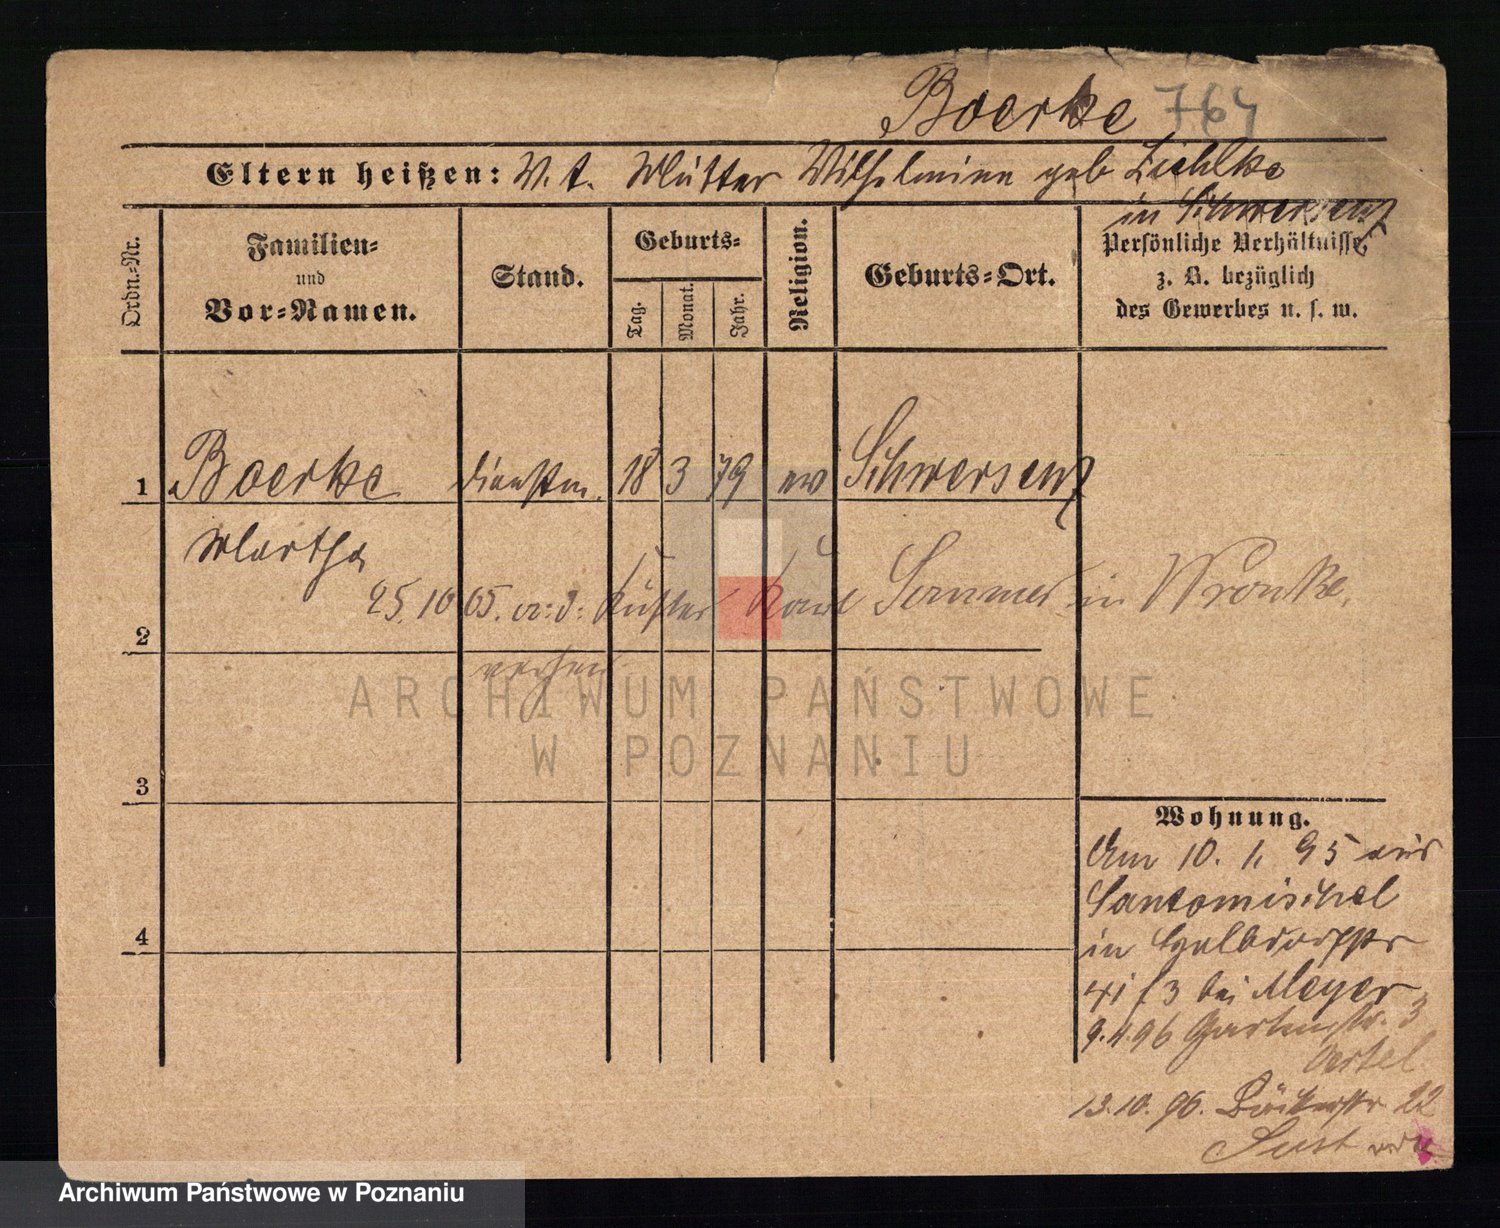 Boerke 764
Eltern heißen: V. t. Mutter Wilhelmine geb Ziehlke
in Schwersenz
Ordn.-Nr.
Familien-
und
Vor-Namen.
Stand.
Geburts-
Tag.
Monat.
Jahr.
Religion.
Geburts-Ort.
Persönliche Verhältnisse,
z. B. bezüglich
des Gewerbes u. s. w.
1 Boerke Dienstm. 18 3 79 ev Schwersenz
Martha
25. 10 05. Karl Sommer in Wronke.
2
3
4
ARCHIWUM PAŃSTWOWE
W POZNANIU
Wohnung.
Am 10. 1. 95 aus
Santomischel
in
bei Meyer
9. 4. 96 Gartenstr. 3
Oertel
13. 10. 96. Bäckerstr 22
Archiwum Państwowe w Poznaniu